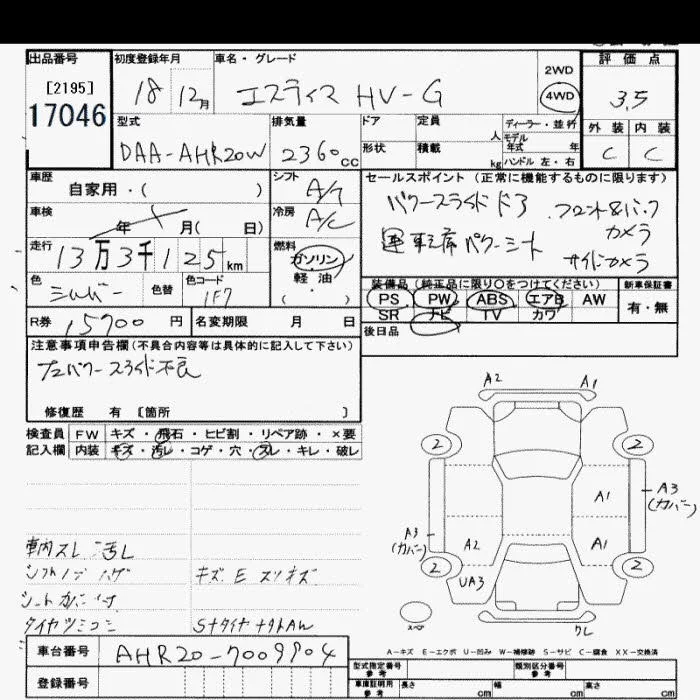 出品番号 初度登録年月 車名・グレード 2WD 評価点
[2195] 18 12月 エスティマ HV-G 4WD 3.5
17046
型式 排気量 ドア 定員 人 ディーラー・並行 外装 内装
モデル年式 年
DAA-AHR20W 2360cc 形状 積載 kg ハンドル 左・右 C C
車歴 自家用・( ) シフト A/T セールスポイント (正常に機能するものに限ります)
パワースライドドア フロント&バック
カメラ
車検 年 月( 日) 冷房 A/C 運転席パワーシート サイドカメラ
走行 13万3千125km 燃料 ガソリン・軽油・( )
装備品 (純正品に限り〇をつけてください) 新車保証書
色 シルバー 色替 色コード 1F7 PS PW ABS エアB AW 有・無
SR ナビ TV カワ
R券 15900円 名変期限 月 日 後日品
注意事項申告欄(不具合内容等は具体的に記入して下さい)
左パワースライド不良
修復歴 有 [箇所 ]
検査員 FW キズ・飛石・ヒビ割・リペア跡・×要
記入欄 内装 キズ・汚レ・コゲ・穴・スレ・キレ・破レ
A2 A1
2 2
A1 A3
(カバー)
A3
(カバー) A2 A1
2 2
UA3
車内スレ 汚レ
キズ E スリキズ
シートカバー付
タイヤツミコミ SタイヤナットAW
スペ クレ
A-キズ E-エクボ U-凹み W-補修跡 S-サビ C-腐食 XX-交換済
車台番号 AHR20-7009904
登録番号
型式指定番号 参考 類別区分番号 参考
車庫証明用 参考 長さ cm 幅 cm 高さ cm